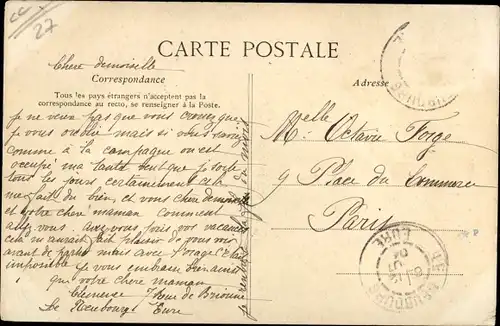 27
CARTE POSTALE
Chere demoiselle
Correspondance
Tous les pays étrangers n'acceptent pas la
correspondance au recto, se renseigner à la Poste.
Adresse
je ne veux pas que vous croyez que
je vous oublie mais si vous savez
comme à la campagne on est
occupé ma tante veut que je sorte
tous les jours certainement cela
me fait du bien et vous chere demoiselle
et votre chere maman comment
allez vous avez vous pris vos vacances
cela m'aurait fait plaisir de vous voir
avant de partir mais avec l'orage c'était
impossible je vous embrasse bien ainsi
que votre chere maman
Clemence rue de Brionne
Le Neubourg Eure
Melle Octavie Forge
9 Place du Commerce
Paris
LE NEUBOURG
EURE